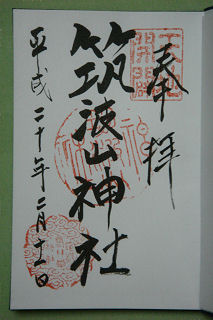 奉拝
筑波山神社
平成二十年二月十一日